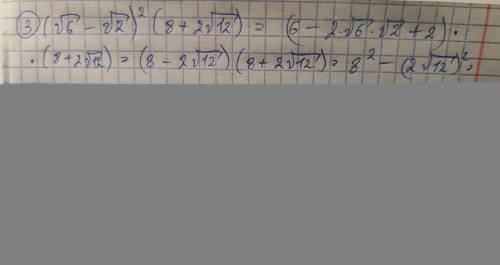 ③ (√6 - √2)² (8 + 2√12) = (6 - 2·√6·√2 + 2) ·
· (8 + 2√12) = (8 - 2√12)(8 + 2√12) = 8² - (2√12)² =